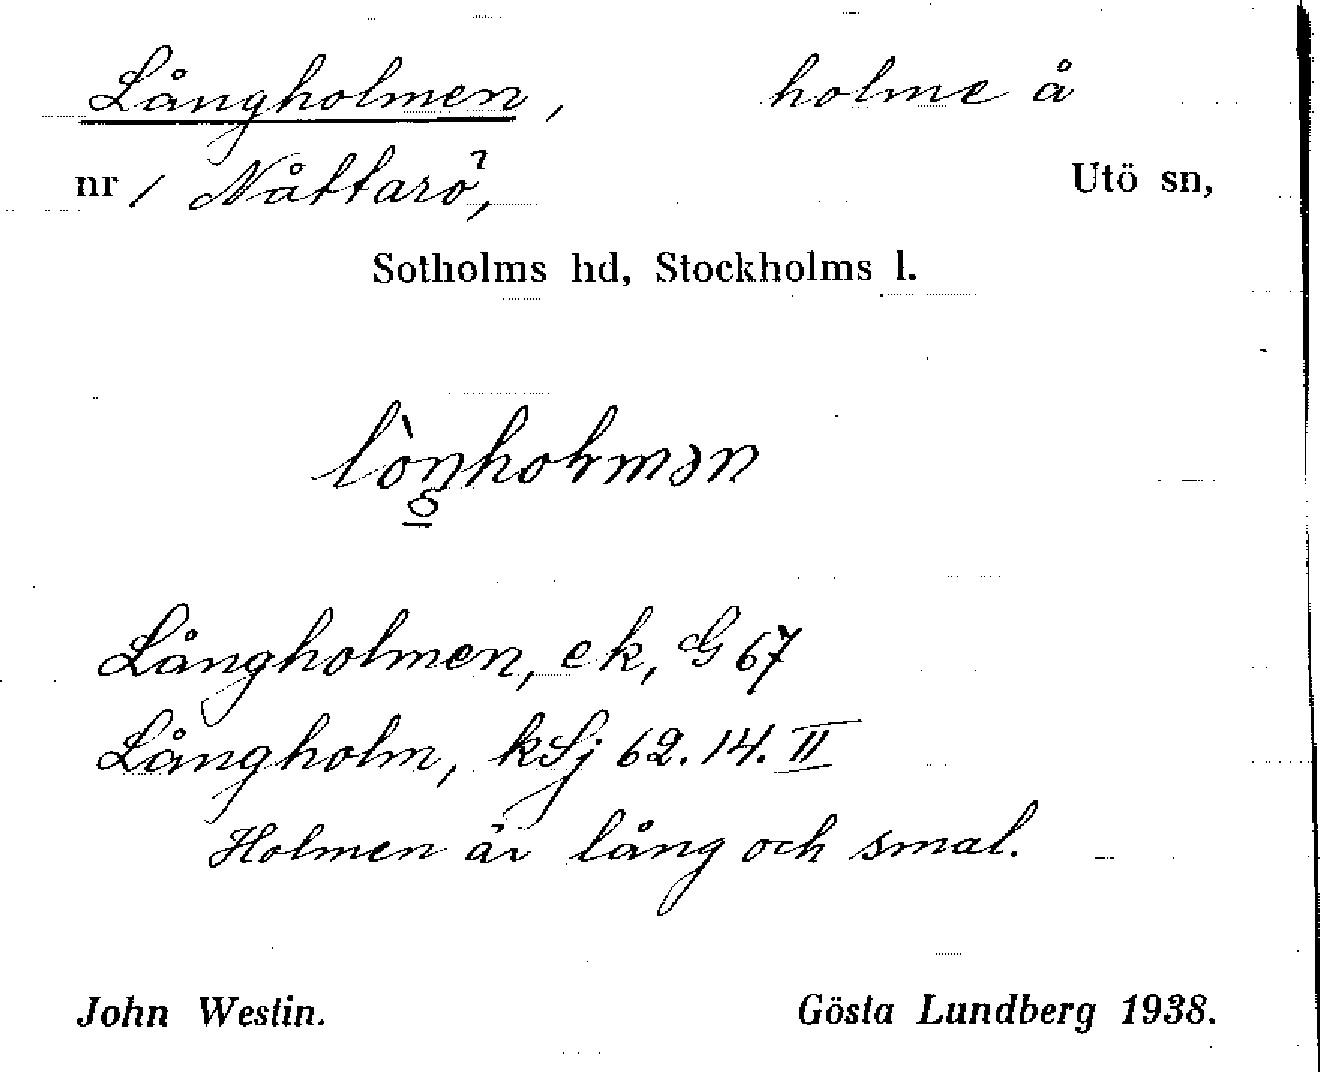 Långholmen, holme å
nr 1 Nåttarö, Utö sn,
Sotholms hd, Stockholms l.
Långholmen, ek, G 67
Långholm, kSj 62.14.II
Holmen är lång och smal.
John Westin. Gösta Lundberg 1938.